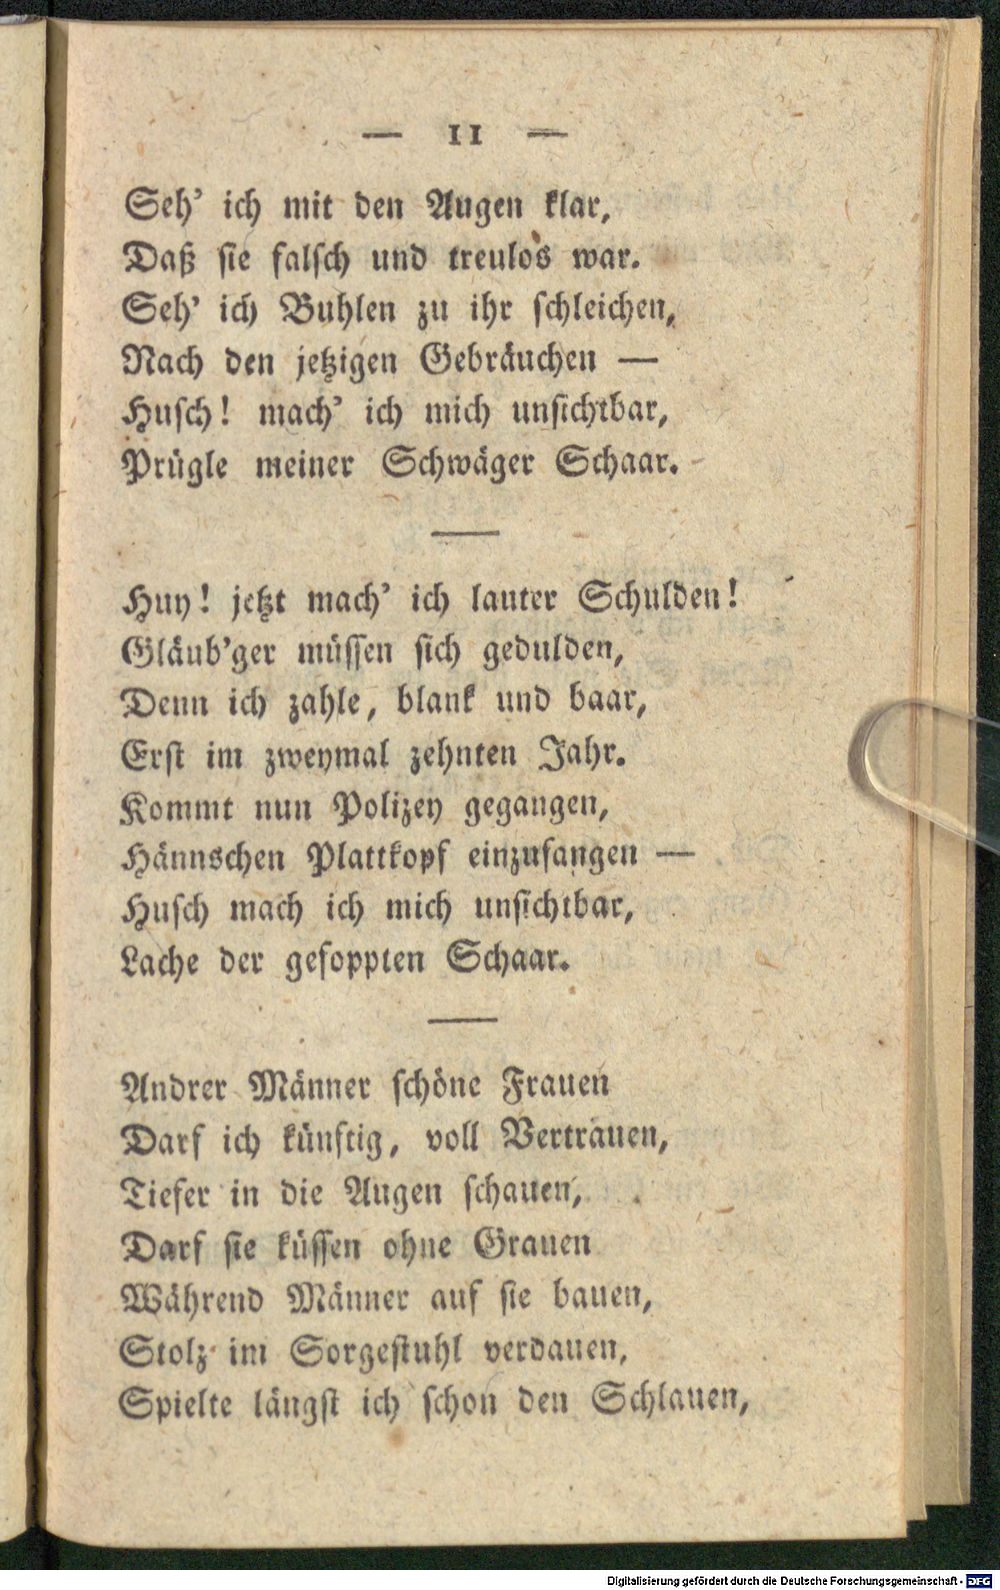 — 11 —
Seh' ich mit den Augen klar,
Daß sie falsch und treulos war.
Seh' ich Buhlen zu ihr schleichen,
Nach den jetzigen Gebräuchen —
Husch! mach' ich mich unsichtbar,
Prügle meiner Schwäger Schaar.
Huy! jetzt mach' ich lauter Schulden!
Gläub'ger müssen sich gedulden,
Denn ich zahle, blank und baar,
Erst im zweymal zehnten Jahr.
Kommt nun Polizey gegangen,
Hännschen Plattkopf einzufangen —
Husch mach ich mich unsichtbar,
Lache der gefoppten Schaar.
Andrer Männer schöne Frauen
Darf ich künftig, voll Vertrauen,
Tiefer in die Augen schauen,
Darf sie küssen ohne Grauen
Während Männer auf sie bauen,
Stolz im Sorgestuhl verdauen,
Spielte längst ich schon den Schlauen,
Digitalisierung gefördert durch die Deutsche Forschungsgemeinschaft - DFG